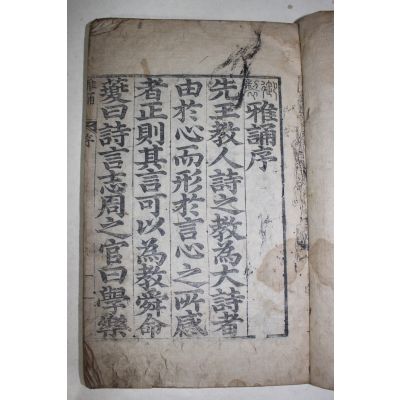 御製雅誦序
先王教人詩之教為大詩者
由於心而形於言心之所感
者正則其言可以為教舜命
夔曰詩言志周之官曰學樂
雅誦 序